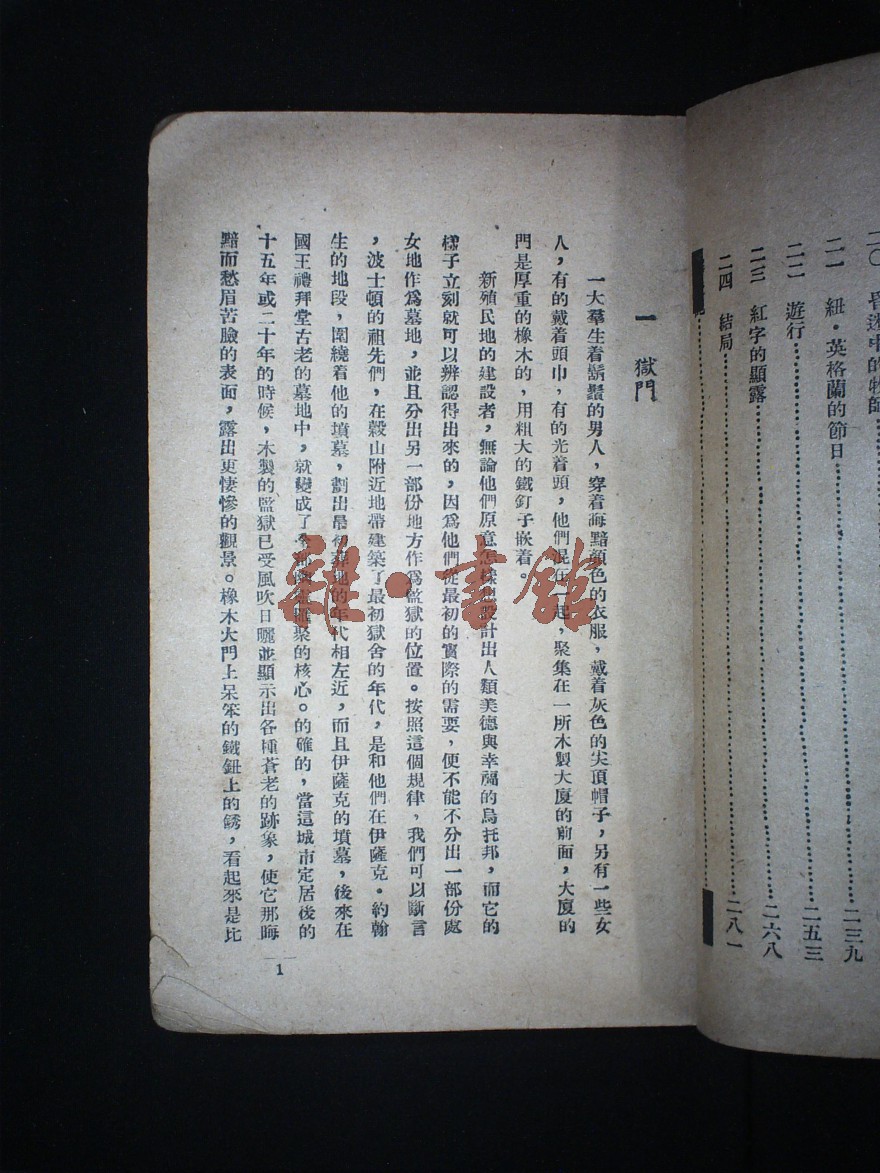 二〇 昏迷中的牧師
二一 紐·英格蘭的節日……二三九
二二 遊行……二五三
二三 紅字的顯露……二六八
二四 結局……二八一
一 獄門
一大羣生着鬍鬚的男人，穿着晦黯顏色的衣服，戴着灰色的尖頂帽子，另有一些女
人，有的戴着頭巾，有的光着頭，他們混在一起，聚集在一所木製大廈的前面，大廈的
門是厚重的橡木的，用粗大的鐵釘子嵌着。
新殖民地的建設者，無論他們原意怎樣地設計出人類美德與幸福的烏托邦，而它的
樣子立刻就可以辨認得出來的，因爲他們從最初的實際的需要，便不能不分出一部份處
女地作爲墓地，並且分出另一部份地方作爲監獄的位置。按照這個規律，我們可以斷言
，波士頓的祖先們，在穀山附近地帶建築了最初獄舍的年代，是和他們在伊薩克·約翰
生的地段，圍繞着他的墳墓，劃出最初葬地的年代相左近，而且伊薩克的墳墓，後來在
國王禮拜堂古老的墓地中，就變成了匯聚的核心。的確的，當這城市定居後的
十五年或二十年的時候，木製的監獄已受風吹日曬並顯示出各種蒼老的跡象，使它那晦
黯而愁眉苦臉的表面，露出更悽慘的觀景。橡木大門上呆笨的鐵鈕上的銹，看起來是比
1
雜·書館